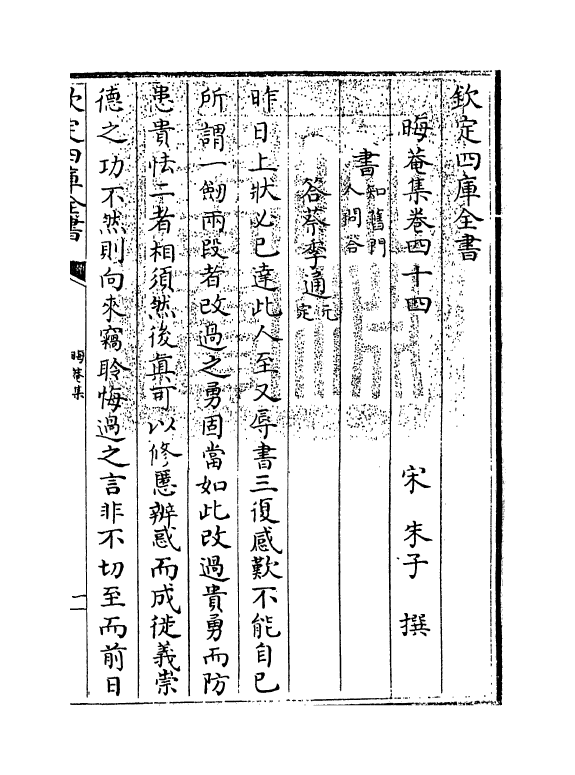 欽定四庫全書
晦菴集卷四十四
宋 朱子 撰
書知舊門人問答
答蔡季通元定
昨日上狀必已達此人至又辱書三復感歎不能自已
所謂一劒兩段者改過之勇固當如此改過貴勇而防
患貴怯二者相須然後真可以修慝辨惑而成徙義崇
德之功不然則向來竊聆悔過之言非不切至而前日
欽定四庫全書
晦菴集